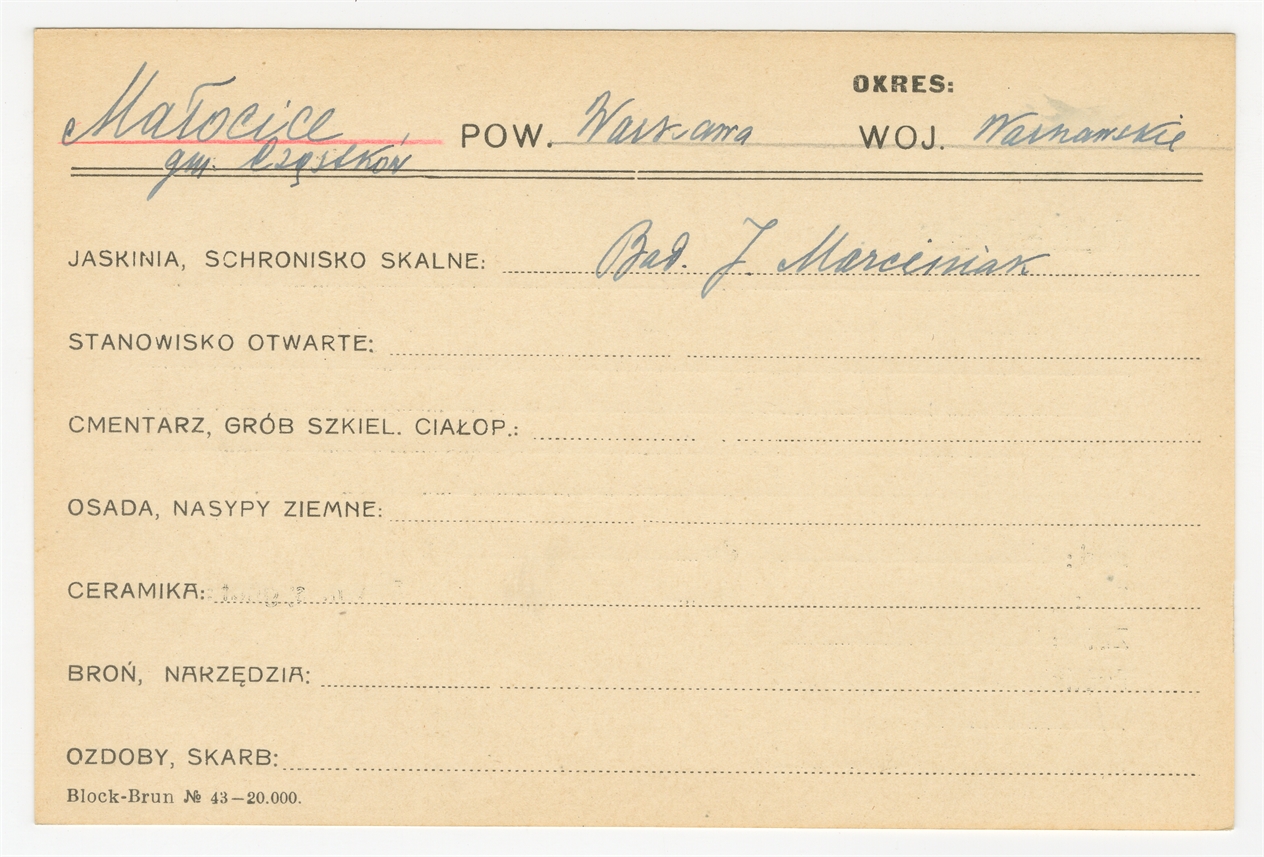 OKRES:
Małocice POW. Warszawa WOJ. Warszawskie
gm. Cząstków
JASKINIA, SCHRONISKO SKALNE: Bad. J. Marciniak
STANOWISKO OTWARTE:
CMENTARZ, GRÓB SZKIEL. CIAŁOP.:
OSADA, NASYPY ZIEMNE:
CERAMIKA:
BROŃ, NARZĘDZIA:
OZDOBY, SKARB:
Block-Brun № 43—20.000.